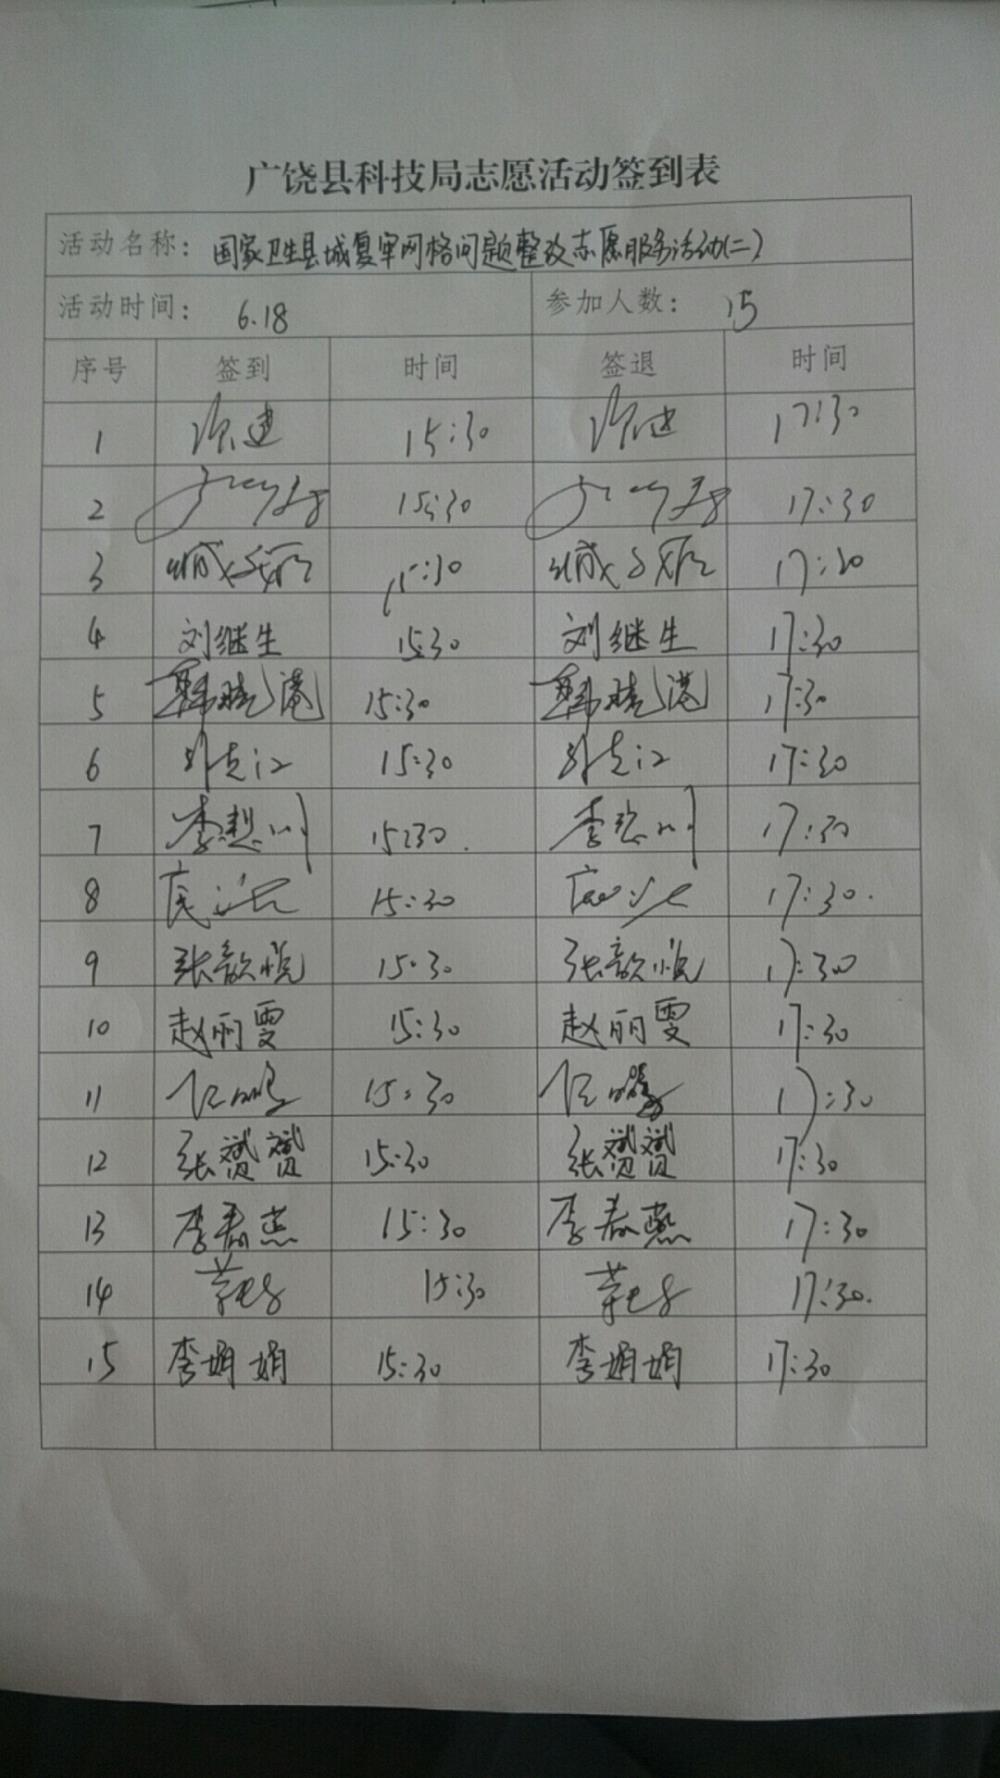 广饶县科技局志愿活动签到表
活动名称： 国家卫生县城复审网格问题整改志愿服务活动(二)
活动时间： 6.18 参加人数： 15
序号 签到 时间 签退 时间
1 15:30 17:30
2 15:30 17:30
3 15:30 17:30
4 刘继生 15:30 刘继生 17:30
5 韩晓港 15:30 韩晓港 17:30
6 15:30 17:30
7 15:30 17:30
8 15:30 17:30.
9 张歆悦 15:30 张歆悦 17:30
10 赵丽雯 15:30 赵丽雯 17:30
11 15:30 17:30
12 张赟赟 15:30 张赟赟 17:30
13 李春燕 15:30 李春燕 17:30
14 15:30 17:30.
15 李娟娟 15:30 李娟娟 17:30